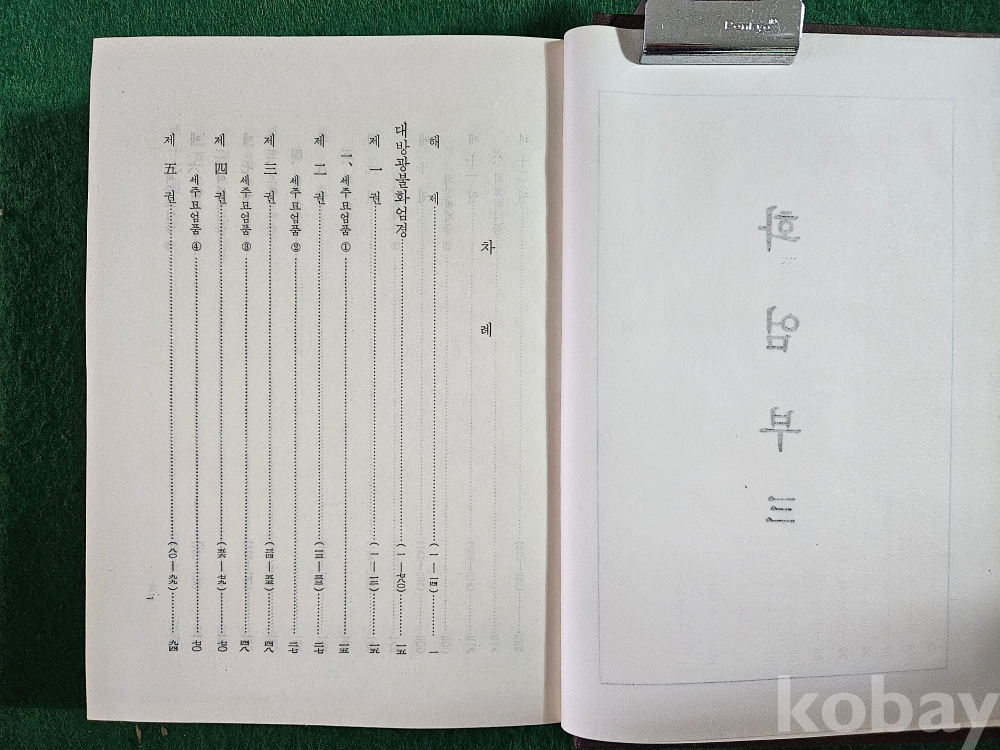 화엄부 三
차 례
해 제 ( 一 — 一四 ) 一
대방광불화엄경 ( 一 — 七八〇 ) 一五
제 一 권 ( 一 — 一二 ) 一五
一、세주묘엄품 ① 一五
제 二 권 ( 一三 — 三三 ) 二七
세주묘엄품 ② 二七
제 三 권 ( 三四 — 五五 ) 四八
세주묘엄품 ③ 四八
제 四 권 ( 五六 — 七九 ) 七〇
세주묘엄품 ④ 七〇
제 五 권 ( 八〇 — 九九 ) 九四
kobay